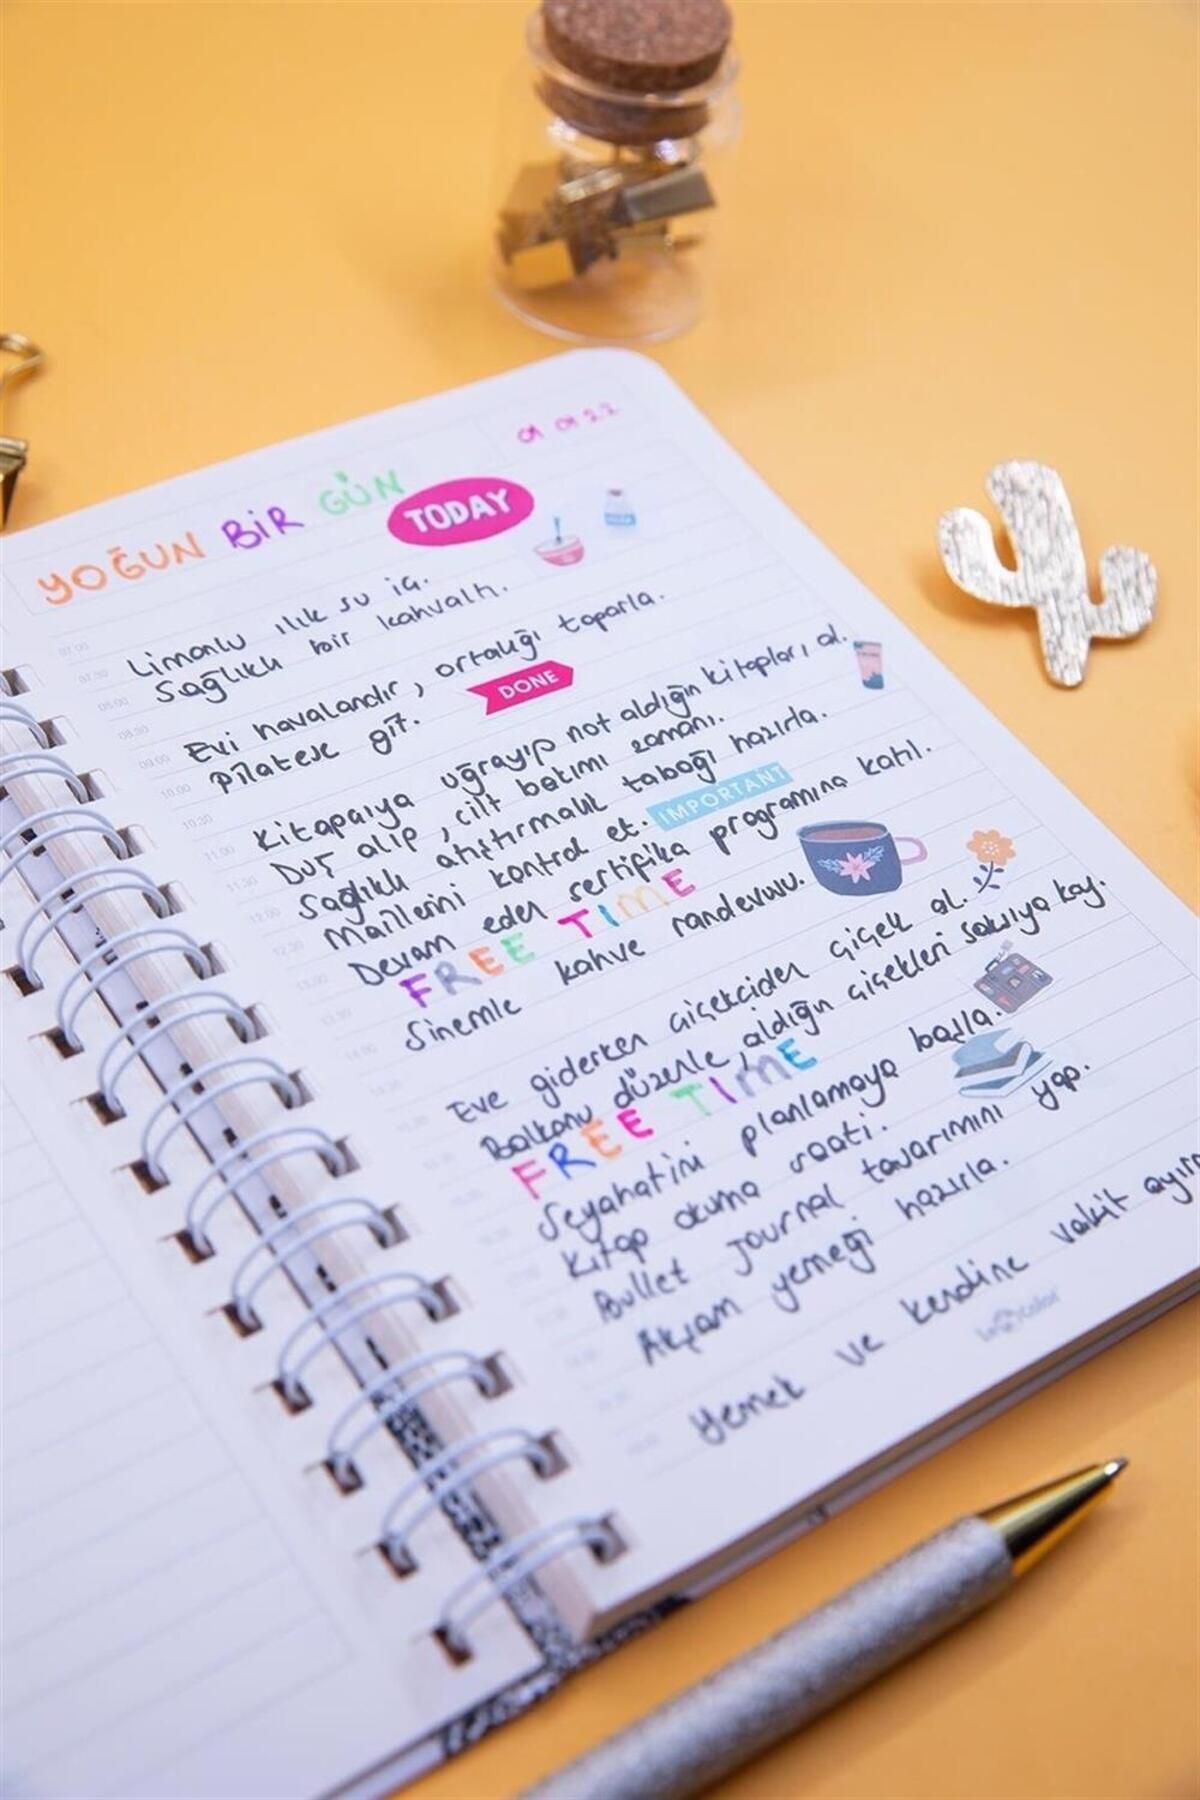 01 01 22
YOĞUN BİR GÜN TODAY
07.00
07.30 Limonlu ılık su iç.
08.00 Sağlıklı bir kahvaltı.
08.30
09.00 Evi havalandır, ortalığı toparla.
10.00 Pilatese git. DONE
10.30
11.00 Kitapçıya uğrayıp not aldığın kitapları al.
11.30 Duş alıp, cilt bakımı zamanı.
12.00 Sağlıklı atıştırmalık tabağı hazırla.
12.30 Maillerini kontrol et. IMPORTANT
13.00 Devam eden sertifika programına katıl.
13.30 FREE TIME
14.00 Sinemle kahve randevusu.
Eve giderken çiçekciden çiçek al.
Balkonu düzenle, aldığın çiçekleri saksıya koy.
FREE TIME
Seyahatini planlamaya başla.
Kitap okuma saati.
Bullet journal tasarımını yap.
Akşam yemeği hazırla.
Yemek ve kendine vakit ayırm